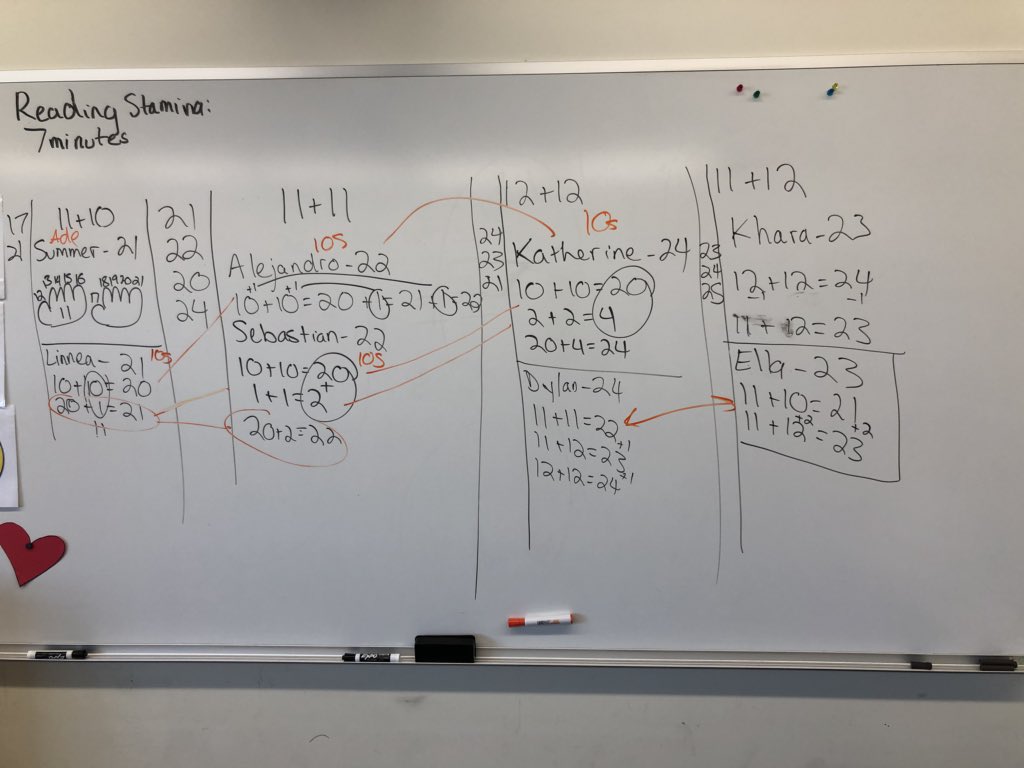 Reading Stamina:
7 minutes
17
21
11+10
Ade
Summer-21
13 14 15 16
18 19 20 21
12
11
17
Linnea-21
10s
10+10=20
20+1=21
11
21
22
20
24
11+11
10s
Alejandro-22
+1 +1
10+10=20+1=21+1=22
Sebastian-22
10+10=20
10s
+
1+1=2
20+2=22
24
23
21
12+12
10s
Katherine-24
10+10=20
2+2=4
20+4=24
Dylan-24
11+11=22
+1
11+12=23
+1
12+12=24
23
24
25
11+12
Khara-23
12+12=24
-1 -1
11+12=23
Ella-23
11+10=21
+2 +2
11+12=23